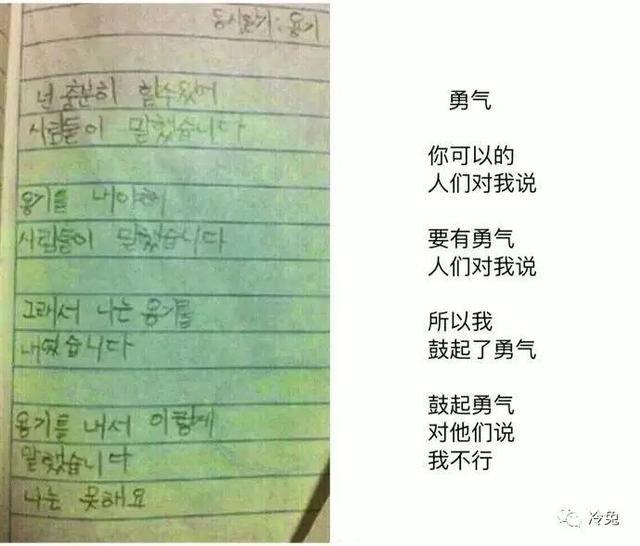 동시쓰기:용기
넌 충분히 할수있어
사람들이 말했습니다
용기를 내야해
사람들이 말했습니다
그래서 나는 용기를
내였습니다
용기를 내서 이렇게
말했습니다
나는 못해요
勇气
你可以的
人们对我说
要有勇气
人们对我说
所以我
鼓起了勇气
鼓起勇气
对他们说
我不行
冷兔